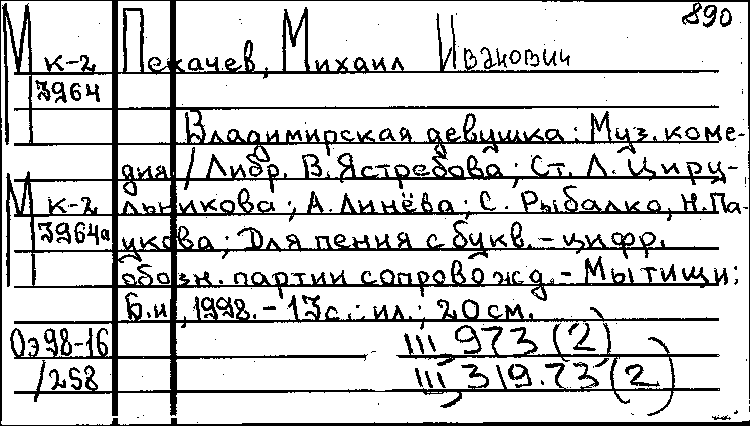 890
М к-2 Пекачев, Михаил Иванович
3964
Владимирская девушка: Муз. коме-
дия / Либр. В. Ястребова; Ст. Л. Циру-
М к-2 льникова; А. Линёва; С. Рыбалко, Н. Па-
3964а укова; Для пения с букв.-цифр.
обозн. партии сопровожд. - Мытищи:
Б.и., 1998. - 13 с.: ил.; 20 см.
Оэ 98-16 III, 973 (2)
/258 III, 319.73 (2)